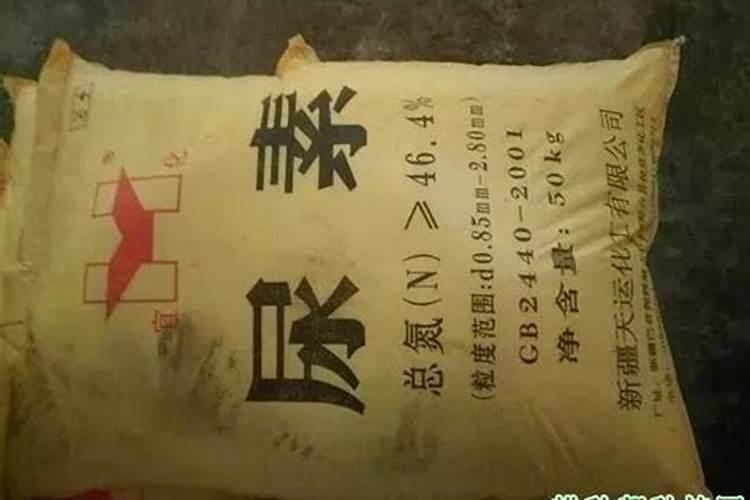 宜化
尿素
总氮(N)≥46.4%
(粒度范围:d0.85mm-2.80mm)
GB2440-2001
净含量:50kg
新疆天运化工有限公司